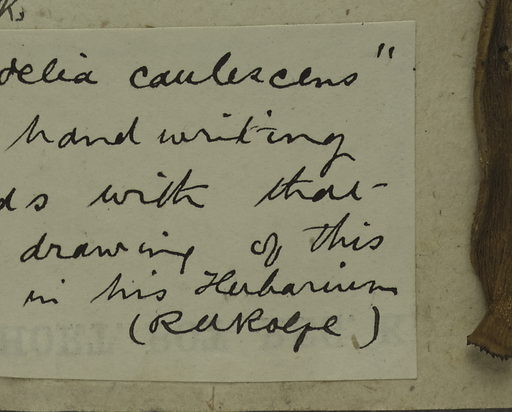 k,
delia caulescens"
handwriting
ds with that
drawing of this
in his Herbarium
(R A Rolfe)